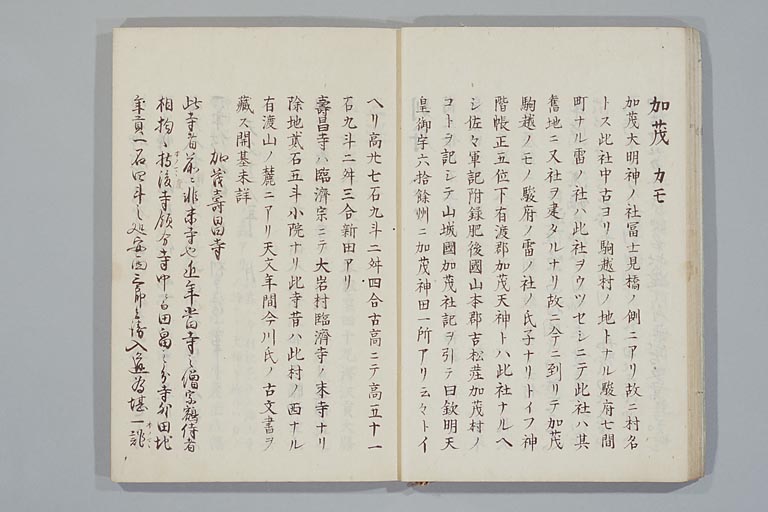 加茂 カモ
加茂大明神ノ社冨士見橋ノ側ニアリ故ニ村名
トス此社中古ヨリ駒越村ノ地トナル駿府七間
町ナル雷ノ社ハ此社ヲウツセシニテ此社ハ其
舊地ニ又社ヲ建タルナリ故ニ今ニ到リテ加茂
駒越ノモノ駿府ノ雷ノ社ノ氏子ナリトイフ神
階帳正五位下有渡郡加茂天神トハ此社ナルヘ
シ佐々軍記附録肥後國山本郡古松莊加茂村ノ
コトヲ記シテ山城國加茂社記ヲ引テ曰欽明天
皇御宇六拾餘州ニ加茂神田一所アリ云々トイ
ヘリ高廿七石九斗二舛四合古高ニテ高五十一
石九斗二舛三合新田アリ
壽昌寺ハ臨濟宗ニテ大岩村臨濟寺ノ末寺ナリ
除地貳石五斗小院ナリ此寺昔ハ此村ノ西ナル
有渡山ノ麓ニアリ天文年間今川氏ノ古文書ヲ
藏ス開基未詳
加茂壽昌寺
此寺者前々非末寺也近年当寺之僧宗鶴侍者
相拘々持後寺領分寺中并田畠之分寺外田地
年貢一石四斗之処安西三郎兵衛入